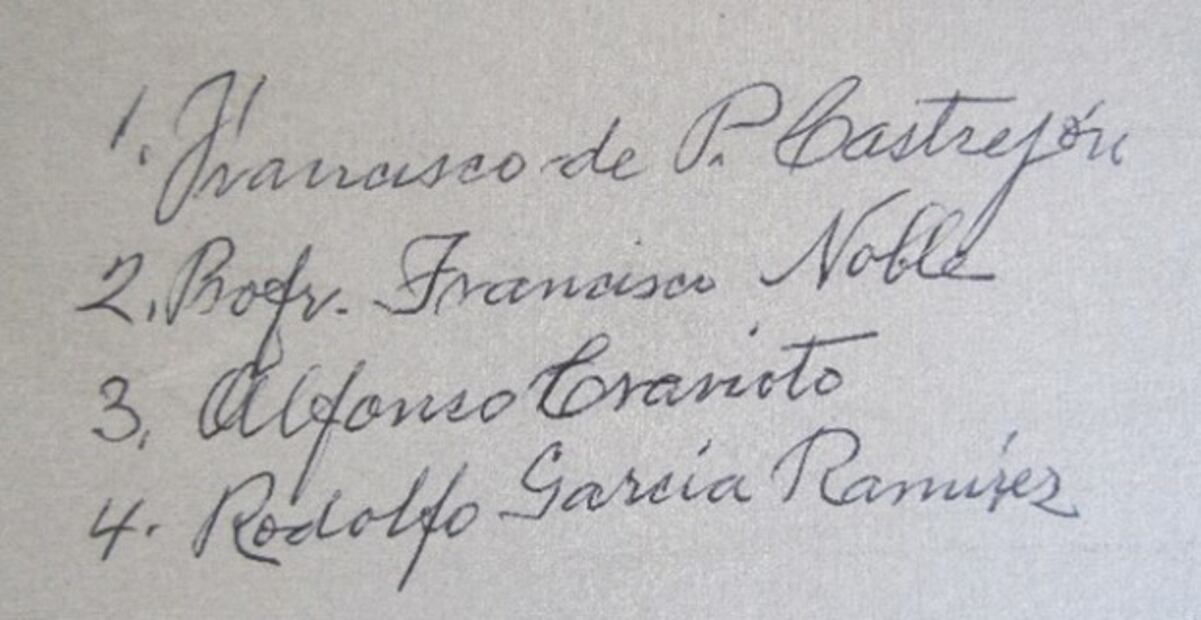 1. Francisco de P. Castrejón
2. Profr. Francisco Noble
3. Alfonso Cravioto
4. Rodolfo García Ramírez